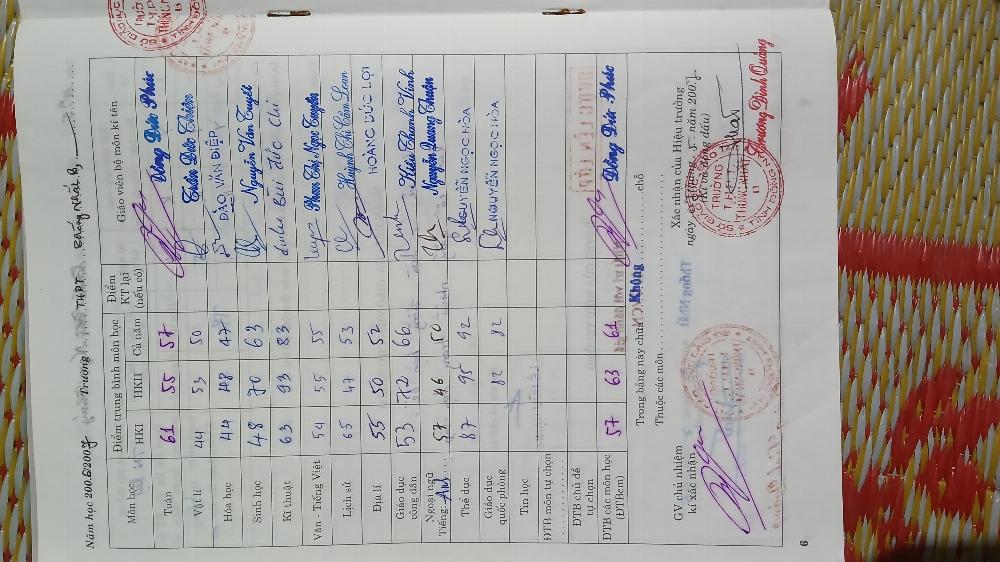 Năm học 200.6/2007 Trường THPT Thống Nhất B
Môn học
Điểm trung bình môn học
HKI HKII Cả năm
Điểm KT lại (nếu có)
Giáo viên bộ môn kí tên
Toán 61 55 57 Đồng Đức Phúc
Vật lí 44 53 50 Trần Đức Thiêm
Hóa học 44 48 47 ĐÀO VĂN ĐIỆP
Sinh học 48 70 63 Nguyễn Văn Tuyết
Kĩ thuật 63 93 83 Bùi Đức Chi
Văn - Tiếng Việt 54 55 55 Phạm Thị Ngọc Truyền
Lịch sử 65 47 53 Huỳnh Thị Cẩm Loan
Địa lí 55 50 52 HOÀNG ĐỨC LỢI
Giáo dục công dân 53 72 66 Hiếu Thanh Vinh
Ngoại ngữ Tiếng Anh 57 46 50 Nguyễn Quang Thuận
Thể dục 87 95 92 NGUYỄN NGỌC HÒA
Giáo dục quốc phòng 82 82 NGUYỄN NGỌC HÒA
Tin học
ĐTB môn tự chọn
ĐTB chủ đề tự chọn
ĐTB các môn học (ĐTBcm) 57 63 61 Đồng Đức Phúc
Trong bảng này chữa Không chỗ
Thuộc các môn
GV chủ nhiệm
kí xác nhận
Xác nhận của Hiệu trưởng
ngày tháng 5 năm 2007
(Kí tên, đóng dấu)
Trương Đình Quảng
6